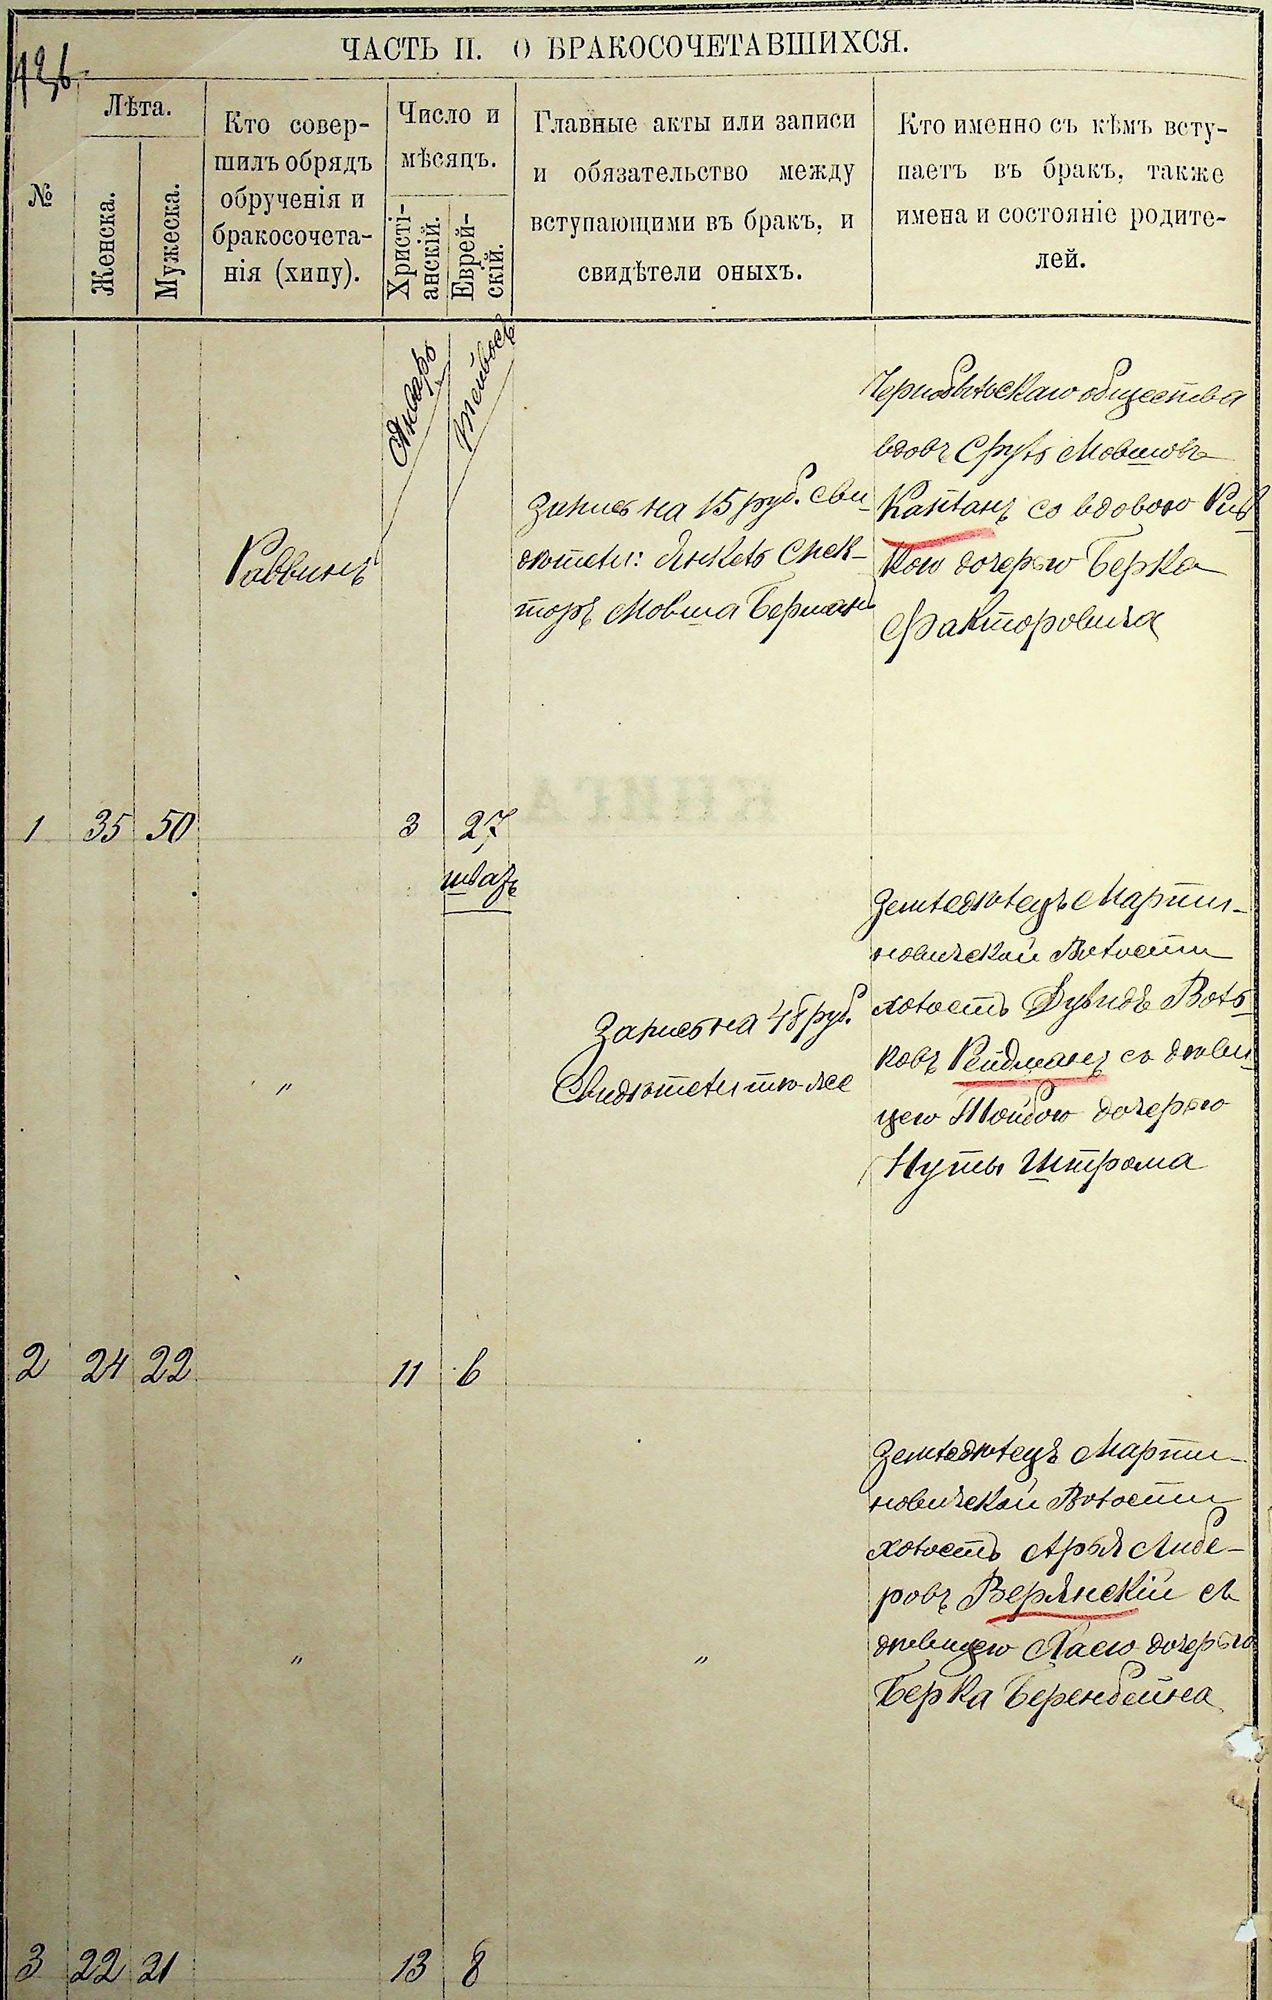 ЧАСТЬ II. О БРАКОСОЧЕТАВШИХСЯ.
№
Лѣта.
Женска.
Мужеска.
Кто совер-
шилъ обрядъ
обрученія и
бракосочета-
нія (хипу).
Число и
мѣсяцъ.
Христі-
анскій.
Еврей-
скій.
Главные акты или записи
и обязательство между
вступающими въ бракъ, и
свидѣтели оныхъ.
Кто именно съ кѣмъ всту-
паетъ въ бракъ, также
имена и состояніе родите-
лей.
Январь
Тейвесъ
Раввинъ
Запись на 15 руб. сви-
дѣтели: Янкель Спек-
торъ Мовша Берман
Чернобыльскаго общества
вдовъ Сруль Мовшовъ
Каплан со вдовою Рив
кою дочерью Берка
Факторовича
1 35 50 3 27
шватъ
Запись на 48 руб.
Свидѣтели тѣ-же
Земледѣлецъ Марти-
новичской Волости
холостъ Дувидъ Воль-
ковъ Рейдманъ съ дѣви-
цею Тойбою дочерью
Нуты Штрома
"
2 24 22 11 6
Земледѣлецъ Марти-
новичской Волости
холостъ Арья Либе-
ровъ Верлнскій съ
дѣвицею Хаею дочерью
Берка Беренбейна
" "
3 22 21 13 8